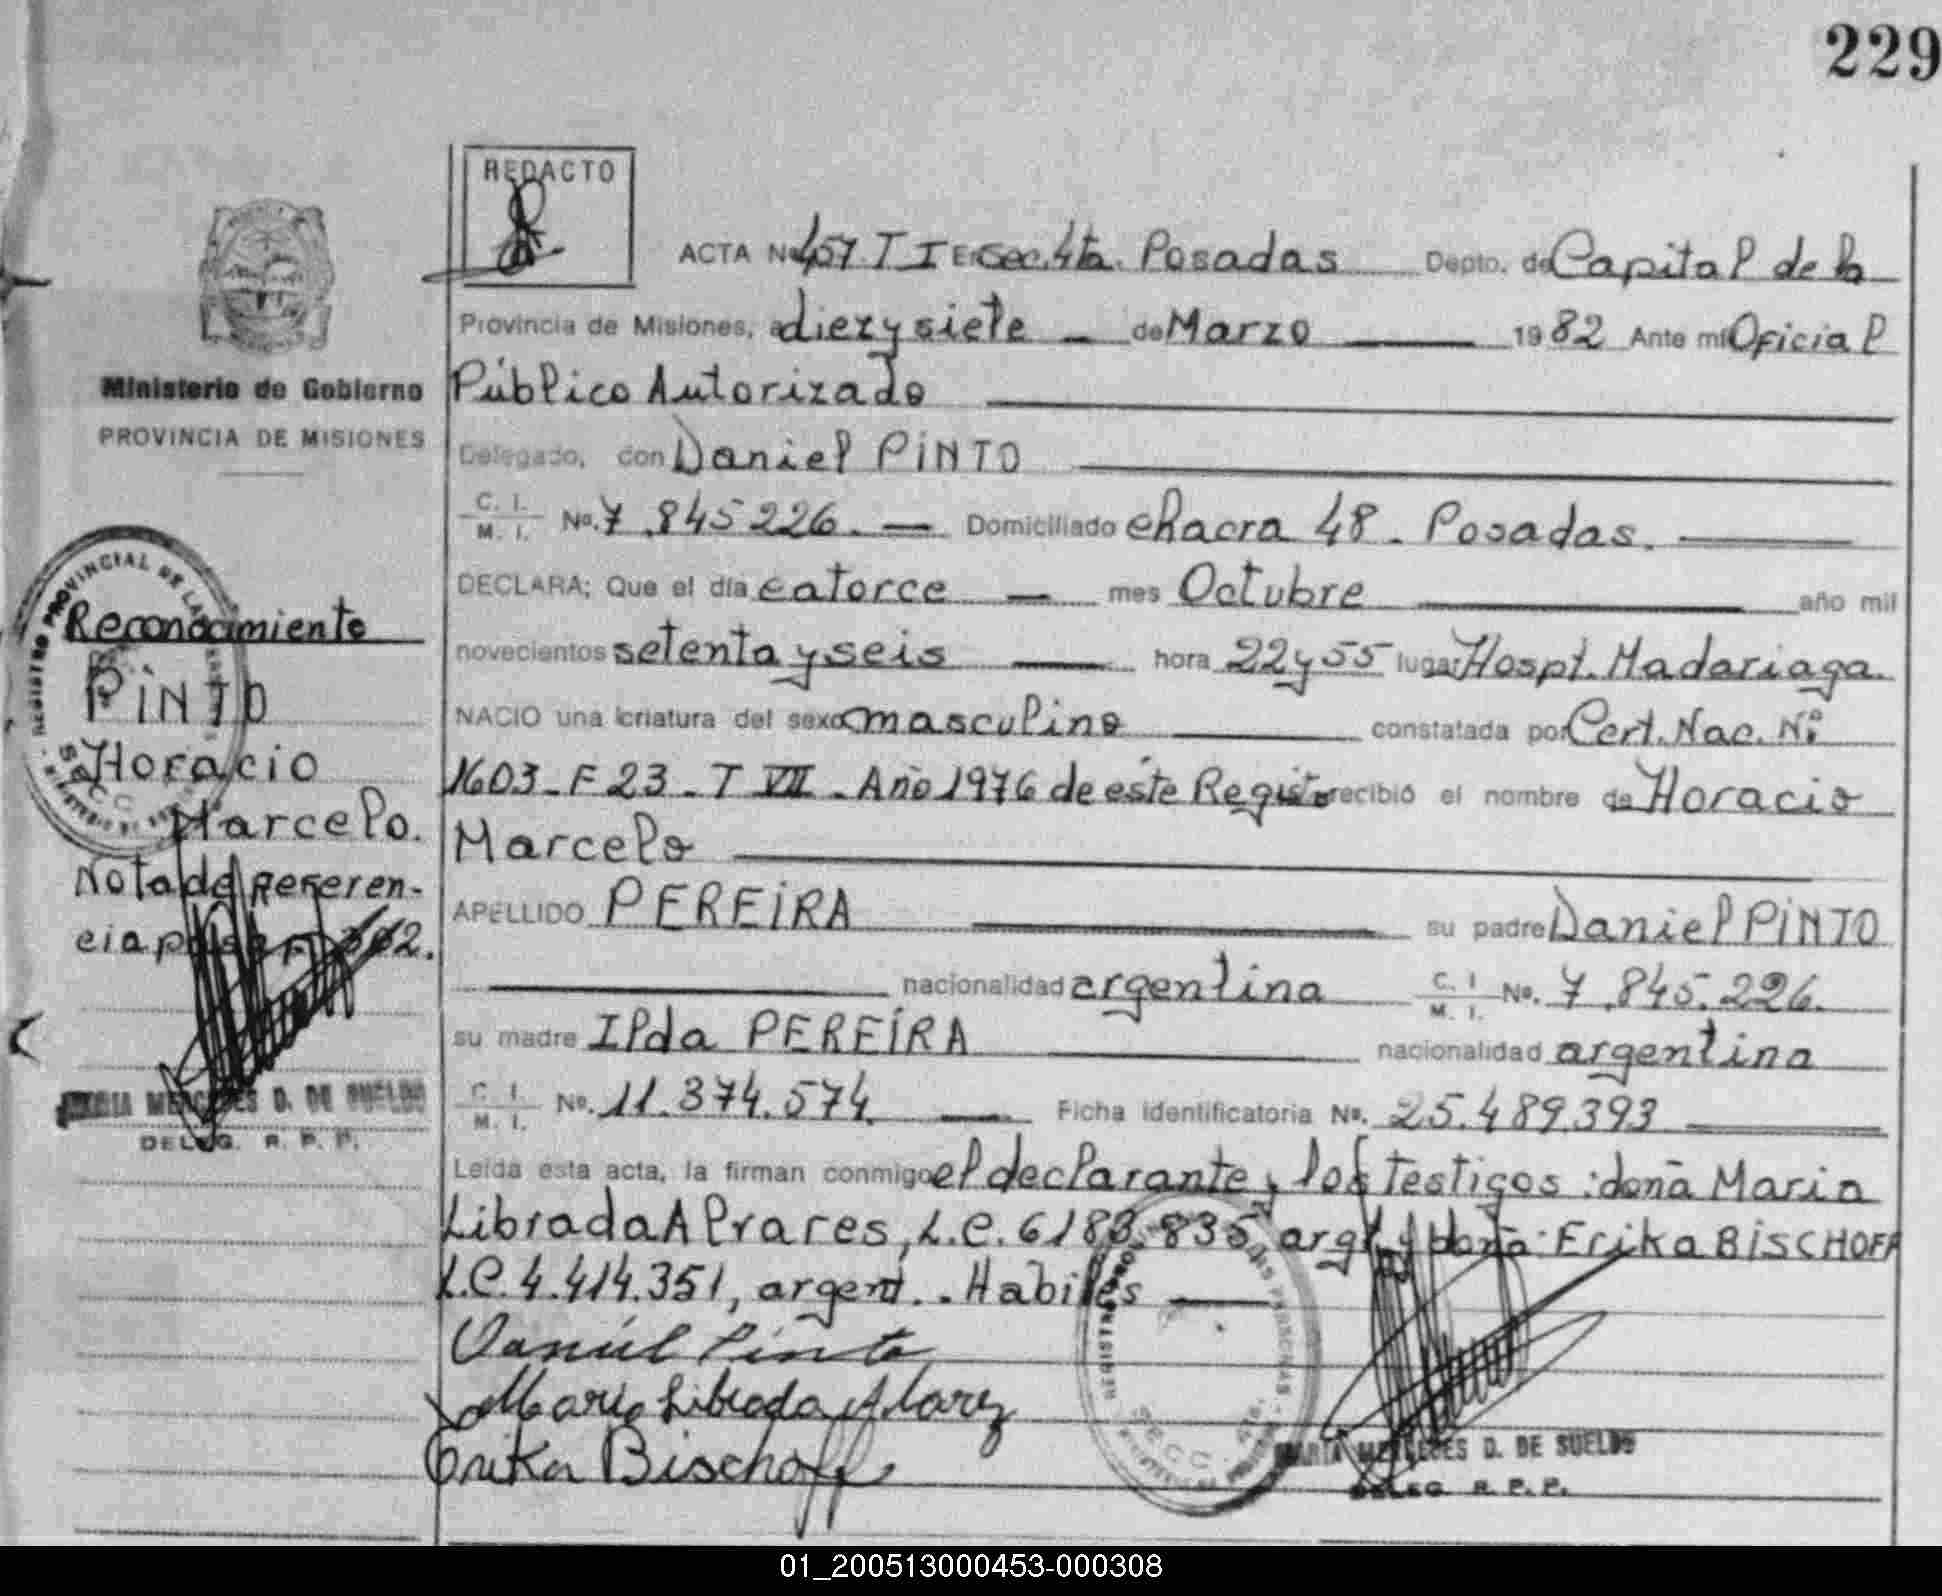 229
REDACTO
ACTA Nº 457. T I En Sec. 4ta. Posadas Depto. de Capital de la
Provincia de Misiones, a diez y siete de Marzo 1982 Ante mí Oficial
Público Autorizado
Delegado, con Daniel PINTO
C. I.
M. I. Nº. 7.845226. Domiciliado chacra 48. Posadas.
DECLARA; Que el día catorce mes Octubre año mil
novecientos setenta y seis hora 22 y 55 lugar Hospt. Madariaga.
NACIO una criatura del sexo masculino constatada por Cert. Nac. Nº
1603 - F 23 - T VII - Año 1976 de este Registro recibió el nombre de Horacio
Marcelo
APELLIDO PEREIRA su padre Daniel PINTO
nacionalidad argentina C. I. M. I. Nº. 7.845.226.
su madre Ilda PEREIRA nacionalidad argentina
C. I.
M. I. Nº. 11.374.574. Ficha identificatoria Nº. 25.489.393
Leída esta acta, la firman conmigo el declarante y los testigos: doña Maria
Librada Alvares, L.C. 6183.835, argt. y doña: Erika BISCHOFF
L.C. 4.414.351, argent.. Habiles
Daniel Pinto
Maria Librada Alvarez
Erika Bischoff
MARIA MERCEDES D. DE SUELDO
DELEG. R. P. P.
Ministerio de Gobierno
PROVINCIA DE MISIONES
REGISTRO PROVINCIAL DE LAS PERSONAS
Reconocimiento
PINTO
Horacio
Marcelo.
Nota de referen-
cia pasa
MARIA MERCEDES D. DE SUELDO
DELEG. R. P. P.
01_200513000453-000308